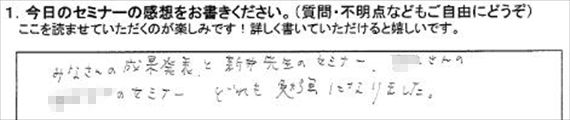 1. 今日のセミナーの感想をお書きください。（質問・不明点などもご自由にどうぞ）
ここを読ませていただくのが楽しみです！詳しく書いていただけると嬉しいです。
みなさんの成果発表と新井先生のセミナー、さんの
のセミナー どれも勉強になりました。